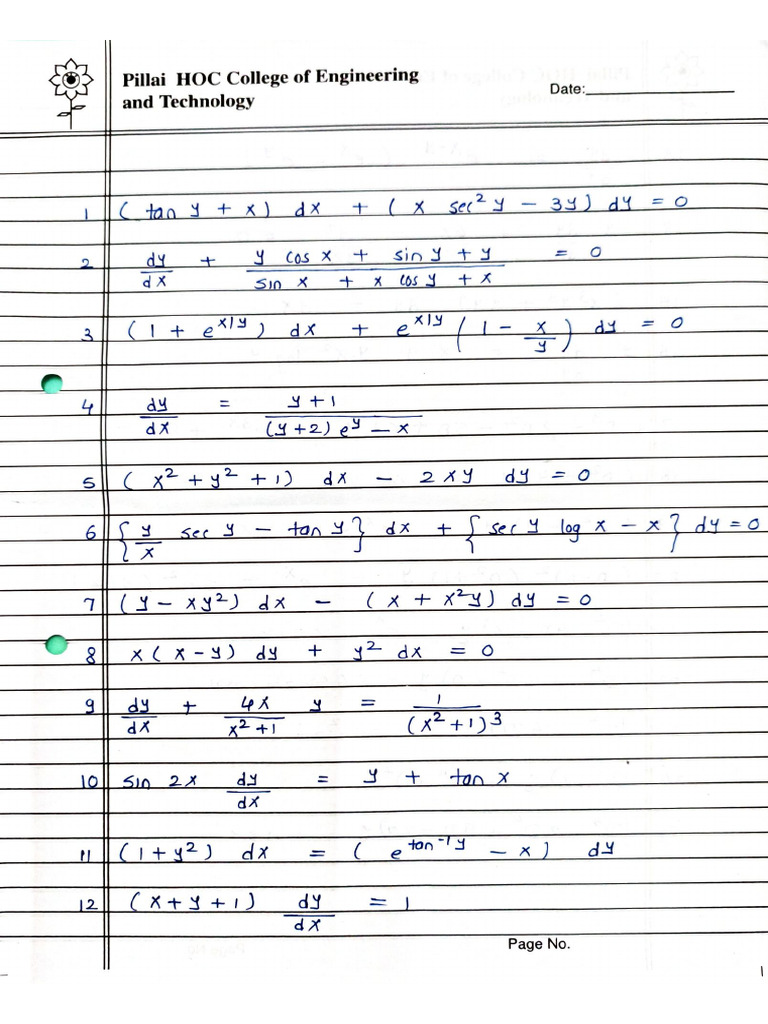 Pillai HOC College of Engineering
and Technology
Date:
1 (tan y + x) dx + (x sec² y − 3y) dy = 0
2 dy/dx + (y cos x + sin y + y)/(sin x + x cos y + x) = 0
3 (1 + e^(x/y)) dx + e^(x/y) (1 − x/y) dy = 0
4 dy/dx = (y + 1)/((y+2) e^y − x)
5 (x² + y² + 1) dx − 2xy dy = 0
6 {y/x sec y − tan y} dx + {sec y log x − x} dy = 0
7 (y − xy²) dx − (x + x²y) dy = 0
8 x(x − y) dy + y² dx = 0
9 dy/dx + 4x/(x²+1) y = 1/(x²+1)³
10 sin 2x dy/dx = y + tan x
11 (1+y²) dx = (e^(tan⁻¹y) − x) dy
12 (x+y+1) dy/dx = 1
Page No.
1